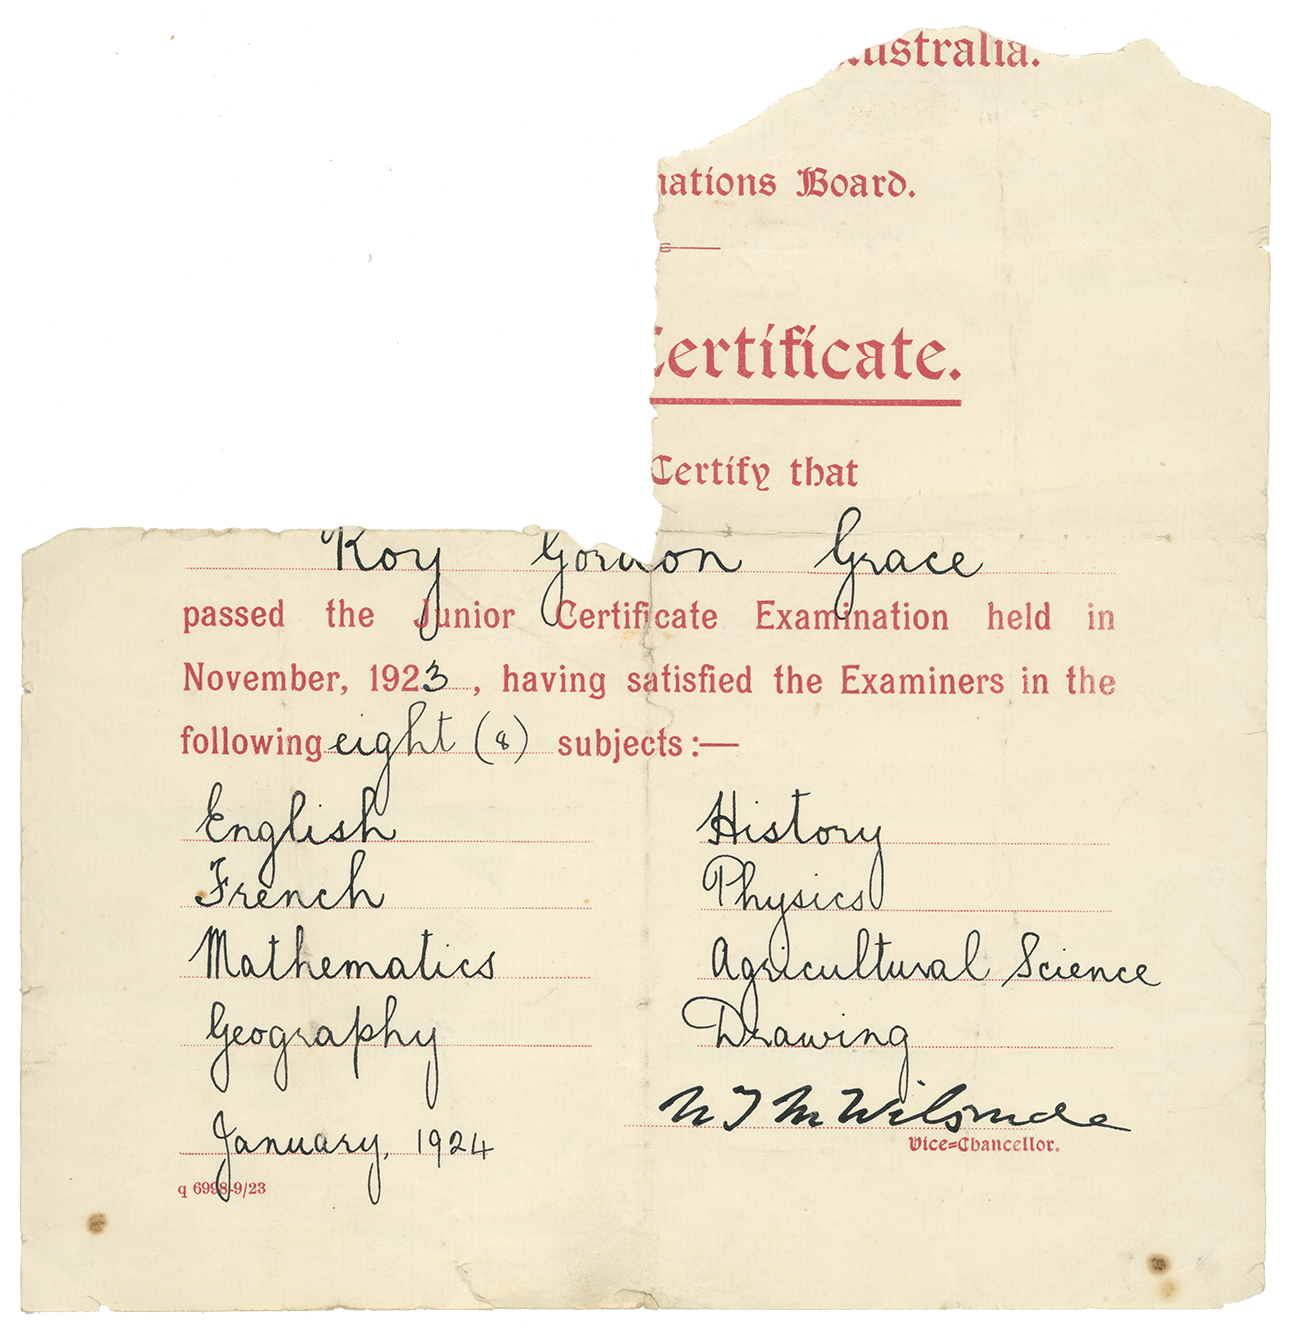 Australia.
nations Board.
Certificate.
Certify that
Roy Gordon Grace
passed the Junior Certificate Examination held in
November, 1923, having satisfied the Examiners in the
following eight (8) subjects:—
English History
French Physics
Mathematics Agricultural Science
Geography Drawing
N T M Wilsmore
Vice-Chancellor.
January, 1924
q 6998-9/23